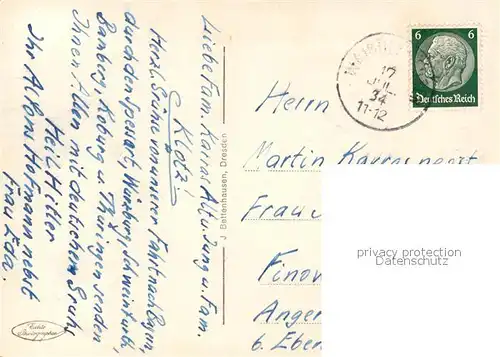 Liebe Fam. Karras Alt u. Jung u. Fam.
Klotz!
Herzl. Grüße von unserer Fahrt nach Bayern,
durch den Spessart, Würzburg, Schweinfurth,
Bamberg, Koburg u. Thüringen senden
Ihnen Allen mit deutschem Gruß,
Heil Hitler
Ihr Albin Hofmann nebst
Frau Lda.
J. Bettenhausen, Dresden
Echte Photographie
6 6
Deutsches Reich
17
34
11-12
Herrn
Martin Karras nebst
Frau
Finow
Anger
b. Eber
privacy protection
Datenschutz